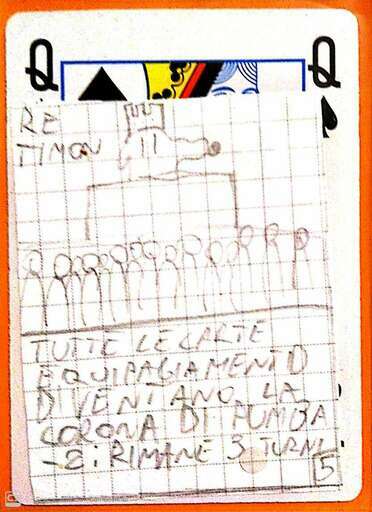 Q Q
RE
TIMON
TUTTE LE CARTE
EQUIPAGIAMENTO
DIVENTANO LA
CORONA DI PUMBA
-2: RIMANE 3 TURNI
5